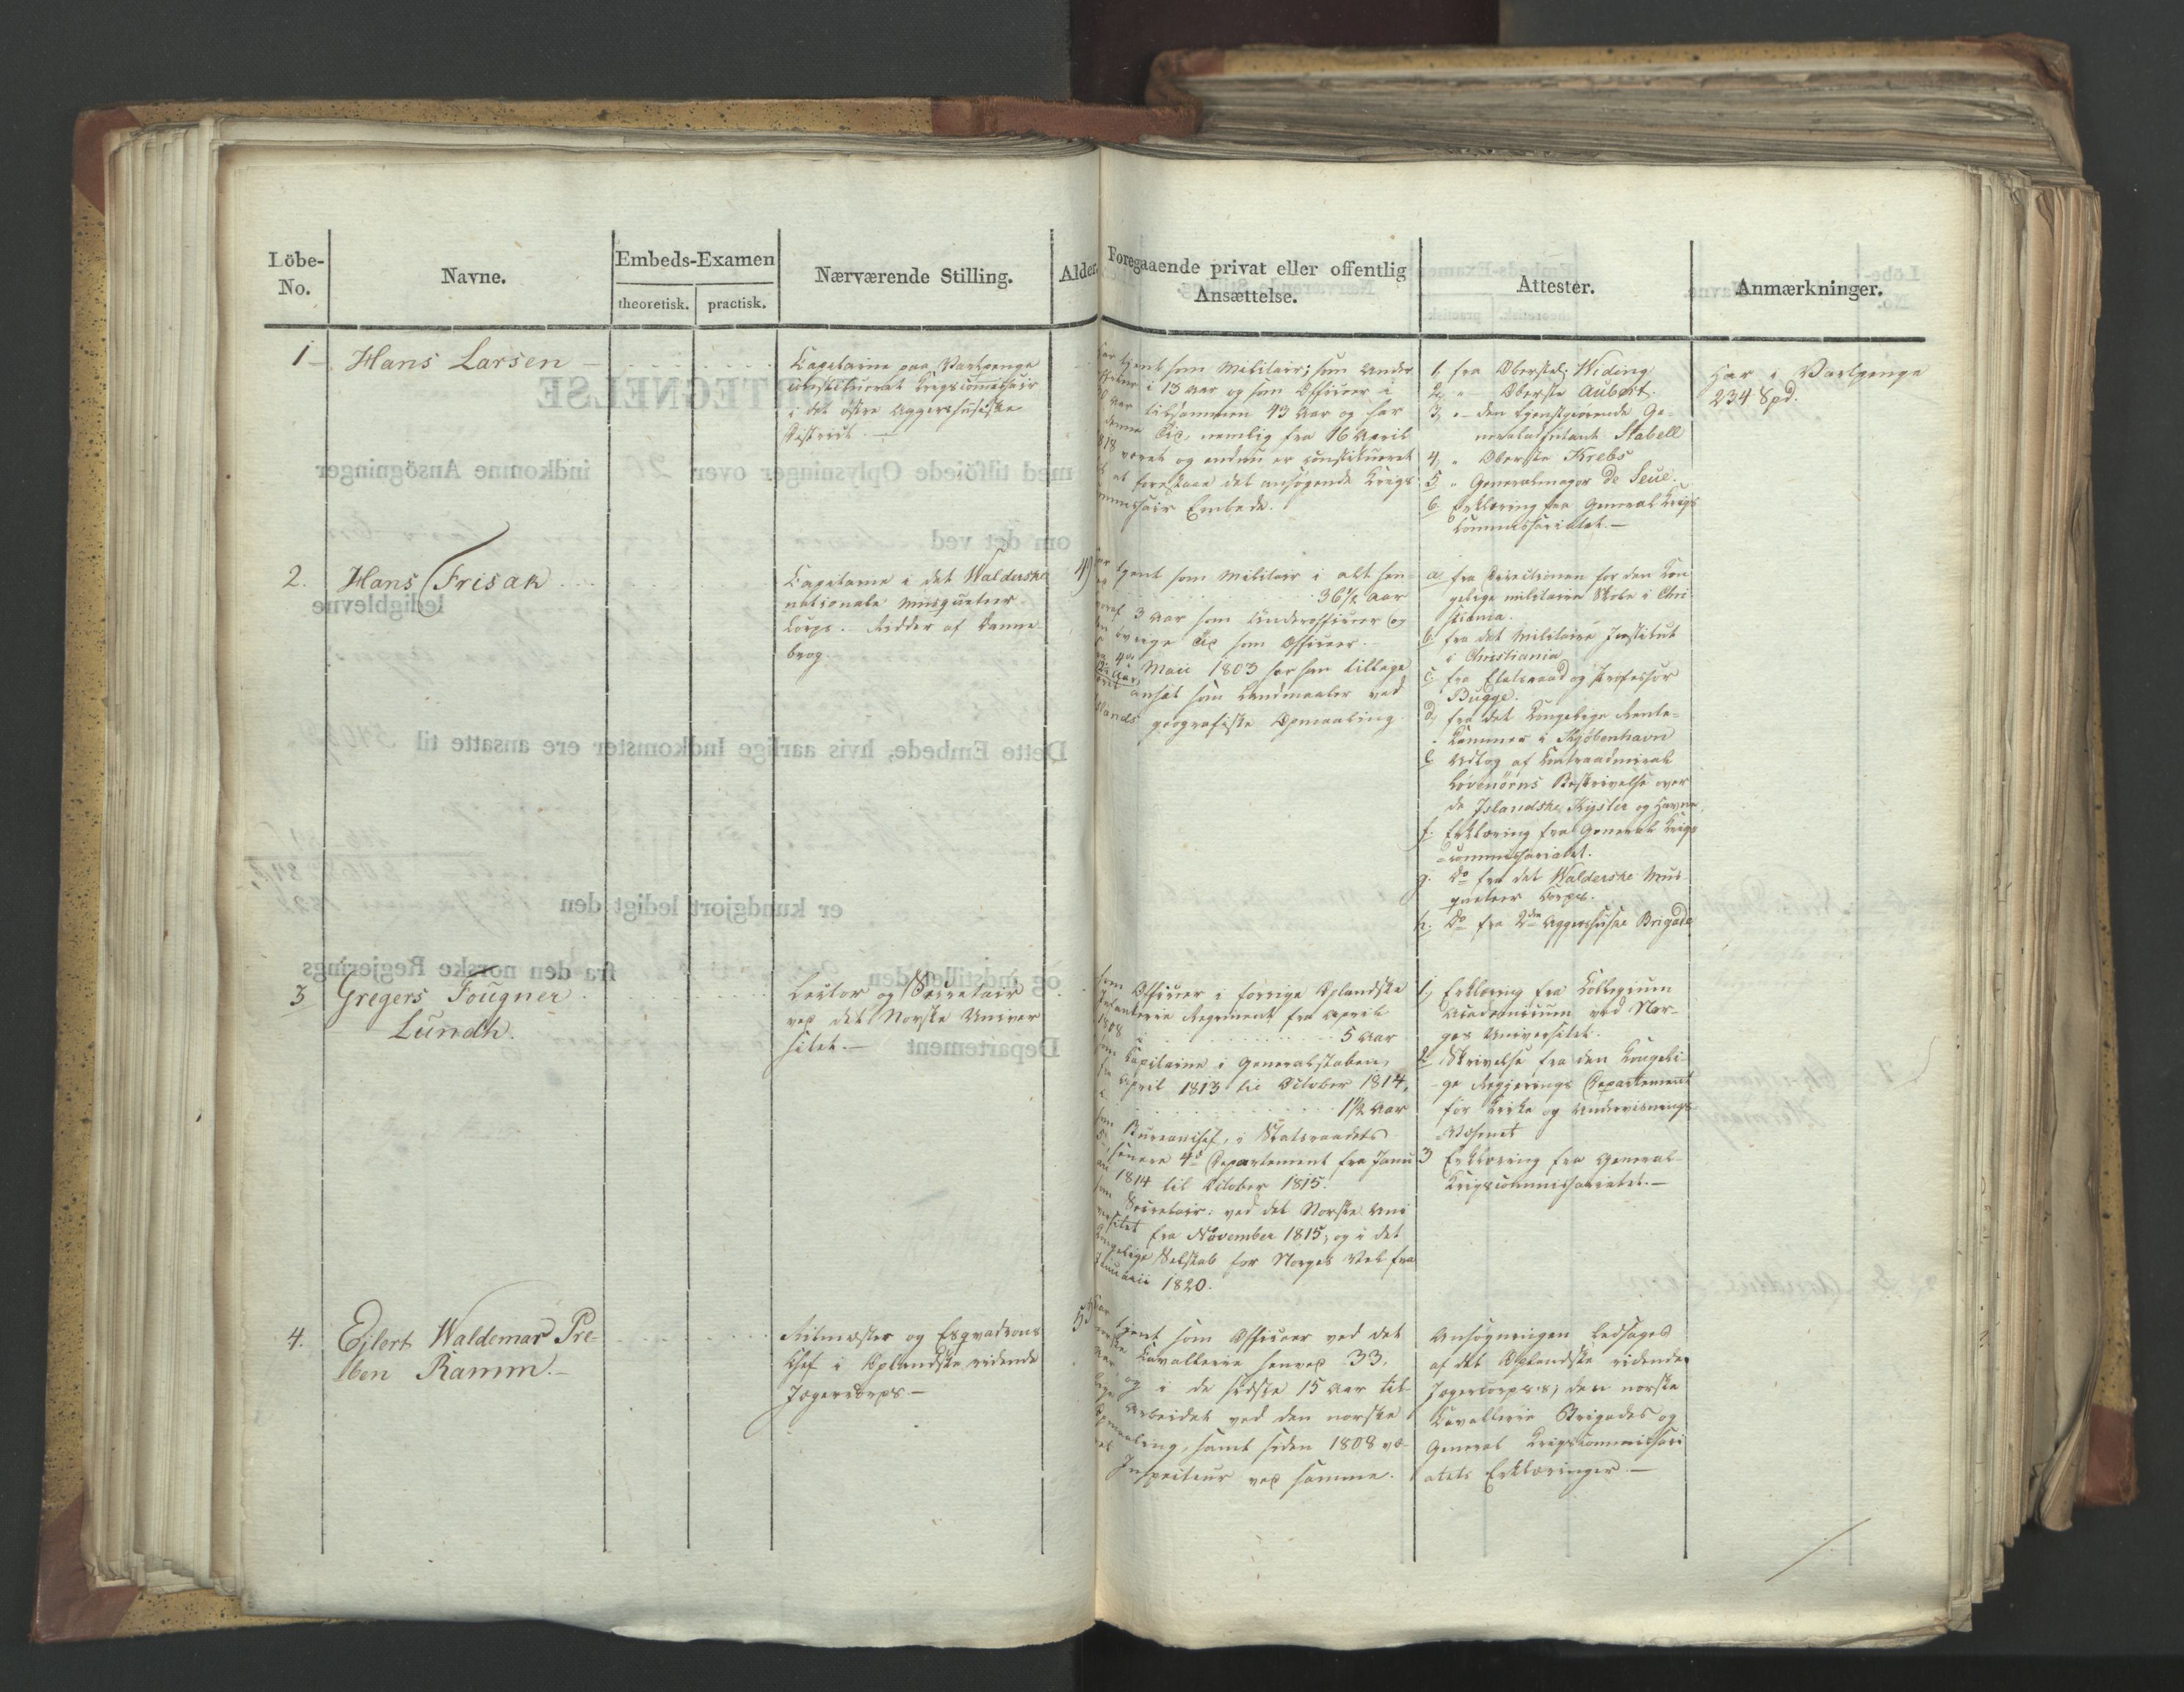 Löbe-
No.
Navne.
Embeds-Examen
theoretisk.
practisk.
Nærværende Stilling.
Alder.
Foregaaende privat eller offentlig
Ansættelse.
Attester.
Anmærkninger.
1 Hans Larsen
Capitaine paa Vartpenge
constitueret Krigscommissair
i det östre Aggershusiske
District.
tient som Militair; som Under
i 13 Aar og som Officeer i
tilsammen 43 Aar og har
denne Tid, nemlig fra 16 April
1818 været og endnu er constitueret
at forestaae det ansøgende Krigs
Embede.
1. fra Oberstel: Widing
2, " Oberste Aubert.
3, " den tjenstgiørende Ge-
neraladjutant Stabell
4, " Oberste Krebs
5, " Generalmajor de Seue.
6. Erklæring fra General Krigs
Commissariatet.
Har i Vartpenge
234 Spd.
2. Hans Frisak
Capitaine i det Walderske
nationale Musqueteer
Corps. Ridder af Danne
brog.
49
tjent som Militair i alt hen-
36½ Aar
3 Aar som Underofficeer og
øvrige Tid som Officeer.
Maii 1803 har han tillige
ansat som Landmaaler ved
Islands geografiske Opmaaling.
a, fra Directionen for den Kon
gelige militaire Skole i Chri
stiania.
b, fra det Militaire Institut
i Christiania
c, fra Etatsraad og Professor
Bugge.
d, fra det Kongelige Rente-
Kammer i Kjöbenhavn
e, Udtog af Contraadmiral
Lövenörns Beskrivelse over
de Islandske Kyster og Havne,
f. Erklæring fra General Krigs
commissariatet.
g. Do fra det Walderske Mus
queteer Corps.
h. Do fra 2den Aggershuske Brigade
3 Gregers Fougner
Lundh.
Lector og Secretair
ved det Norske Univer
sitet.
som Officeer i forrige Oplandske
Infanterie Regiment fra April
1808
5 Aar
som Capitaine i Generalstaben,
fra April 1813 til October 1814,
1½ Aar
som Bureauchef, i Statsraadets
5, senere 4de Departement fra Janu
ari 1814 til October 1815.
som Secretair: ved det Norske Uni
versitet fra November 1815, og i det
Kongelige Selskab for Norges Vel fra
Januarii 1820.
1, Erklæring fra Collegium
Academicum ved Nor-
ges Universitet.
2 Skrivelse fra den Kongeli-
ge Regjerings Departement
for Kirke og Undervisnings
Væsenet
3 Erklæring fra General-
Krigscommissariatet.
4. Ejlert Waldemar Pre-
ben Ramm.
Ritmester og Esqvadrons
Chef i Oplandske ridende
Jægercorps
tjent som Officeer ved det
Cavallerie henved 33,
og i de sidste 15 Aar til
Arbeidet ved den norske
Opmaaling, samt siden 1808 væ-
ret Inspecteur ved samme.
Ansøgningen ledsages
af det Oplandske ridende
Jægercorps's, den norske
Cavallerie Brigades og
General Krigscommissari
atets Erklæringer